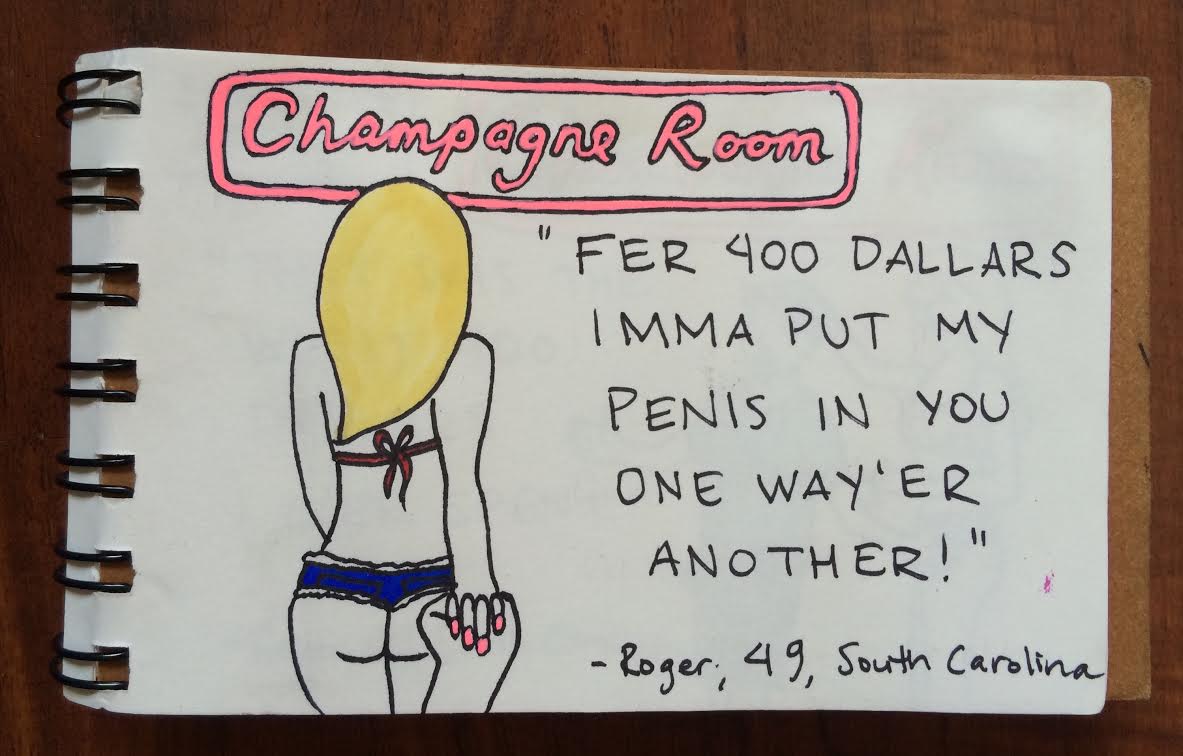 Champagne Room
"FER 400 DALLARS
IMMA PUT MY
PENIS IN YOU
ONE WAY'ER
ANOTHER!"
- Roger, 49, South Carolina